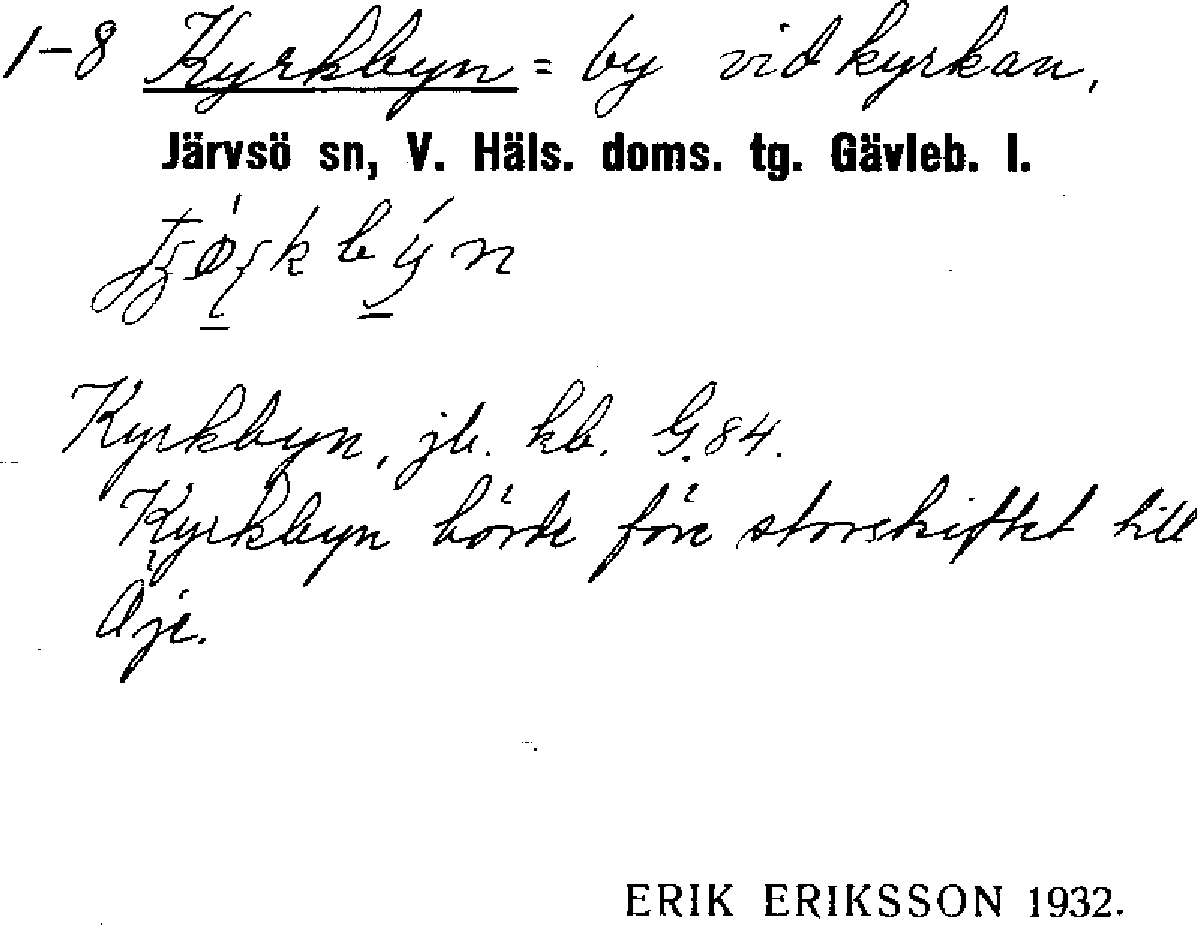 1-8 Kyrkbyn = by vid kyrkan,
Järvsö sn, V. Häls. doms. tg. Gävleb. l.
Kyrkbyn, jb. kb. G.84.
Kyrkbyn hörde före storskiftet till
Öje.
ERIK ERIKSSON 1932.